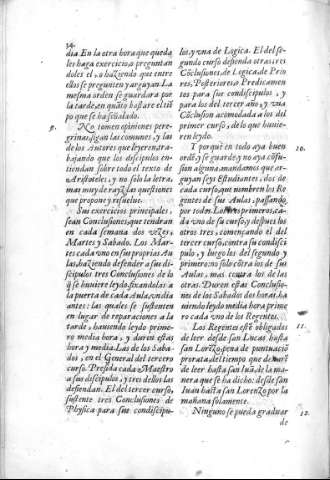 34
dia En la otra hora que queda
les haga exercicio, a preguntan
doles el, o haziendo que entre
ellos se pregunten y arguyan. La
mesma orden se guardara por
la tarde, en quãto bastare el tiẽ
po que se ha señalado.
9.
No tomen opiniones pere-
grinas, sigan las comunes, y las
de los Autores que leyeren, tra-
bajando que los discipulos en-
tiendan sobre todo el texto de
Aristoteles, y no solo la letra,
mas muy de rayz las questiones
que propone y resuelue.
Sus exercicios principales,
sean Conclusiones, que tendran
en cada semana dos vezes,
Martes y Sabado. Los Mar-
tes cada vno en sus proprias Au
las, haziendo defender a sus di-
scipulos tres Conclusiones de lo
q̃ se huuiere leydo, fixandolas a
la puerta de cada Aula, vn dia
antes: las quales se sustenten
en lugar de reparaciones a la
tarde, hauiendo leydo prime-
ro media hora, y duren estas
hora y media. Las de los Saba-
dos, en el General del tercero
curso. Presida cada Maestro
a sus discipulos, y tres dellos las
defiendan. El del tercer curso,
sustente tres Conclusiones de
Physica para sus condiscipu-
los, y vna de Logica. El del se-
gundo curso defienda otras tres
Cõclusiones, de Logica, de Prio
res, Posteriores, o Predicamen
tos para sus condiscipulos, y
para los del tercer año, y vna
Cõclusion acomodada a los del
primer curso, de lo que huuie-
ren leydo.
10.
Y porque en todo aya buen
ordẽ, y se guarde, y no aya cõfu-
sion alguna: mandamos que ar-
guyan seys Estudiantes, dos de
cada curso, que nombren los Re
gentes de sus Aulas, passando
por todos. Los primeros, ca-
da vno de su curso, y despues los
otros tres, començando el del
tercer curso, contra su condisci
pulo, y luego los del segundo y
primero: no solo cõtra los de sus
Aulas, mas contra los de las
otras. Duren estas Conclusio-
nes de los Sabados dos horas, ha
uiendo leydo media hora prime
ro cada vno de los Regentes.
11.
Los Regentes estẽ obligados
de leer desde san Lucas hasta
san Lorẽço, pena de puntuaciõ
prorata, del tiempo que dexarẽ
de leer hasta san Iuã, de la ma-
nera que se ha dicho: desde san
Iuan hasta san Lorenço por la
mañana solamente.
12.
Ninguno se pueda graduar
de